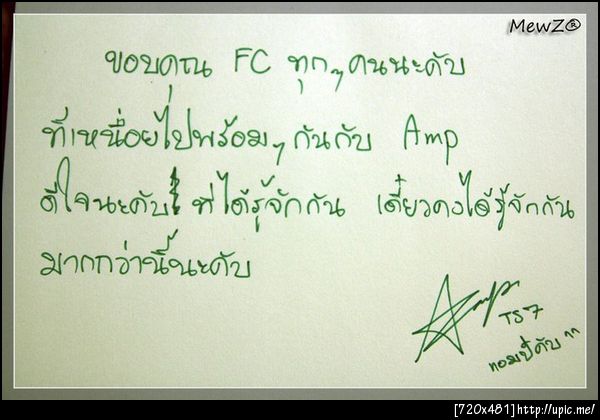 MewZ®
ขอบคุณ FC ทุกๆคนนะคับ
ที่เหนื่อยไปพร้อมๆกันกับ Amp
ดีใจนะคับ ที่ได้รู้จักกัน เดี๋ยวคงได้รู้จักกัน
มากกว่านี้นะคับ
Amp
TS7
ทอมปี้คับ ^^
[720x481]http://upic.me/